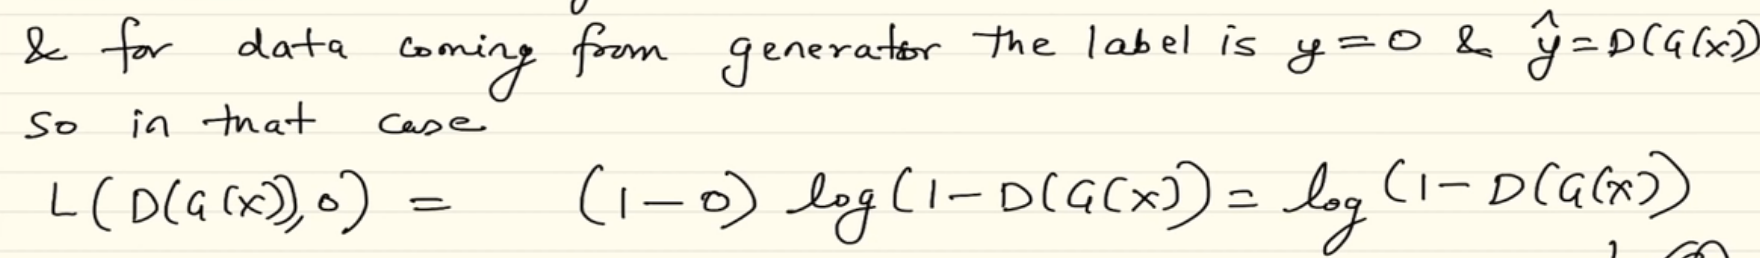 & for data coming from generator the label is y=0 & ŷ=D(G(x))
so in that case
L(D(G(x)),0) = (1-0) log(1-D(G(x)) = log(1-D(G(x))